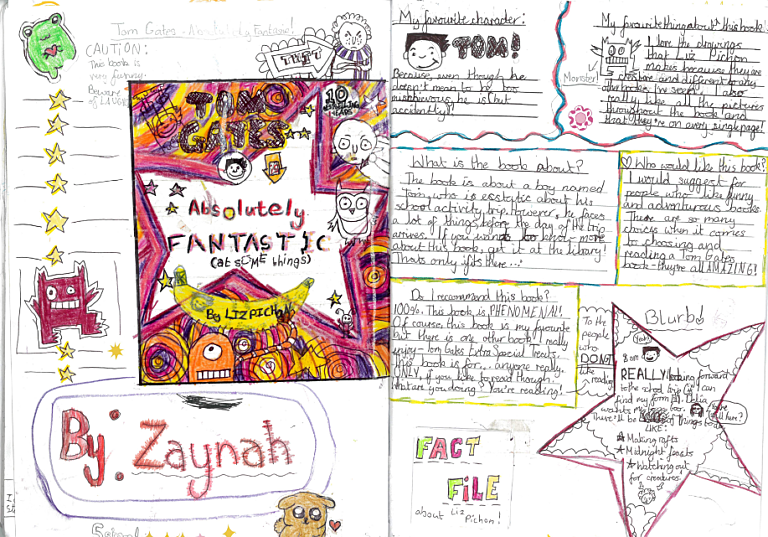 Tom Gates - Absolutely Fantastic!
CAUTION:
This book is
very funny.
Beware
of LAUGH
TOM
GATES
Absolutely
FANTASTIC
(at SOME things)
By LIZ PICHON
By: Zaynah
My favourite character:
TOM!
Because, even though he
doesn't mean to be too
mischievous, he is but
accidently!!
My favourite thing about this book!
I love the drawings
that Liz Pichon
makes because they are
creative and different to any
books I've seen! I also
really like all the pictures
throughout the book and
that they're on every single page!
Monster!
What is the book about?
The book is about a boy named
Tom, who is esstatic about his
school activity trip. However, he faces
a lot of things before the day of the trip
arrives. If you want to know more
about this book, get it at the library!
Thats only if its there...
Who would like this book?
I would suggest for
people who like funny
and adventurous books.
There are so many
choices when it comes
to choosing and
reading a Tom Gates
book - they're all AMAZING!
Do I recommend this book?
100%. This book is PHENOMENAL!
Of course this book is my favourite
but there is one other book I really
enjoy - Tom Gates Extra Special Treats.
This book is for... anyone really.
ONLY if you like to read though.
What are you doing? You're reading!
To the
people
who
DON'T
like
reading
Blurb!
REALLY looking forward
to the school trip
find my form
LIKE:
Making rafts
Midnight feasts
Watching out
for creatures.
FACT
FiLE
about Liz Pichon!